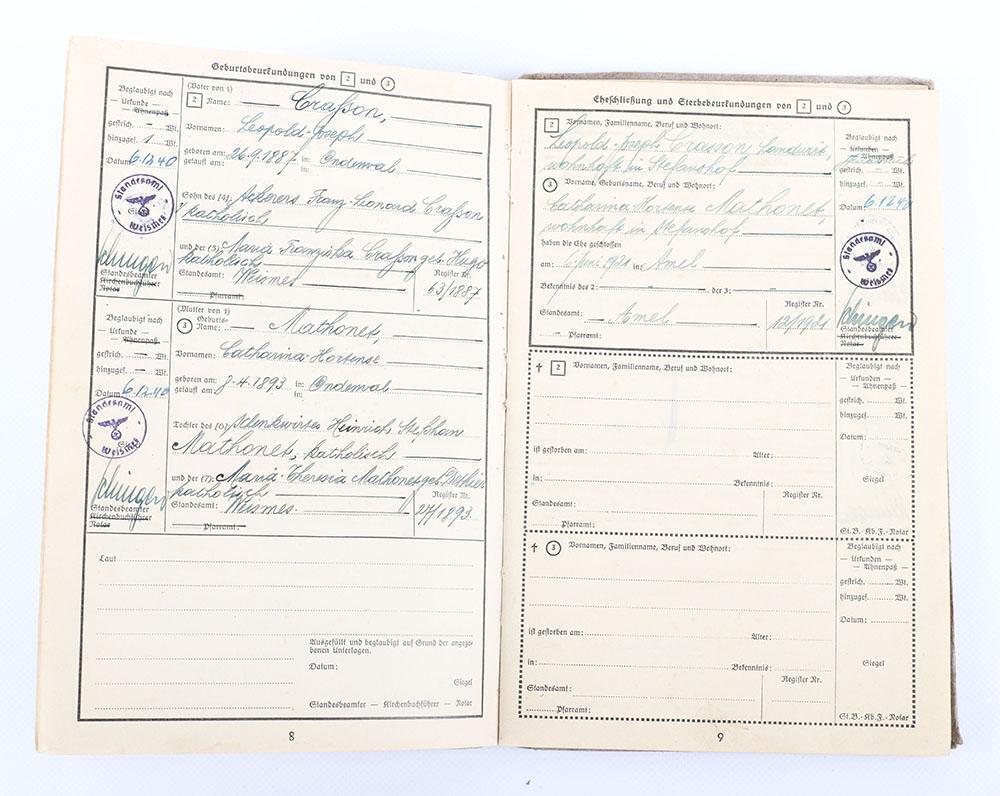 Geburtsbeurkundungen von 2 und 3
Beglaubigt nach
— Urkunde —
— Ahnenpaß
gestrich. — Wt.
hinzugef. 1 Wt.
Datum 6.12.40
Standesamt
Weismes
Standesbeamter
Kirchenbuchführer
Notar
(Vater von 1)
2 Name: Craßon,
Vornamen: Leopold-Joseph
geboren am: 26.9.1887 in: Ondenval
getauft am: in:
Sohn des (4): Ackerers Franz-Leonard Craßon
katholisch
und der (5): Maria-Franziska Craßon geb. Hugo
katholisch
Standesamt: Weismes Register Nr.
Pfarramt: 63/1887
Beglaubigt nach
— Urkunde —
— Ahnenpaß
gestrich. — Wt.
hinzugef. — Wt.
Datum 6.12.40
Standesamt
Weismes
Standesbeamter
Kirchenbuchführer
Notar
(Mutter von 1)
3 Geburts-
Name: Mathonet,
Vornamen: Catharina-Hortense
geboren am: 8.4.1893 in: Ondenval
getauft am: in:
Tochter des (6): Schenkwirtes Heinrich
Mathonet, katholisch
und der (7): Maria-Theresia Mathonet geb.
katholisch
Standesamt: Weismes. Register Nr.
Pfarramt: 27/1893.
Laut
Ausgefüllt und beglaubigt auf Grund der angege-
benen Unterlagen.
Datum:
Siegel
Standesbeamter — Kirchenbuchführer — Notar
8
Eheschließung und Sterbebeurkundungen von 2 und 3
2 Vornamen, Familienname, Beruf und Wohnort:
Leopold-Joseph Crasson Landwirt,
wohnhaft in Stefanshof
3 Vorname, Geburtsname, Beruf und Wohnort:
Catharina Hortense Mathonet,
wohnhaft in Stefanshof
haben die Ehe geschlossen
am: 6 Juni 1921 in: Amel
Bekenntnis des 2: — der 3: —
Standesamt: — Amel Register Nr.
— Pfarramt: 12/1921
Beglaubigt nach
— Urkunden —
— Ahnenpaß
gestrich. — Wt.
hinzugef. — Wt.
Datum 6.12.40
Standesamt
Weismes
Standesbeamter
Kirchenbuchführer
Notar
† 2 Vornamen, Familienname, Beruf und Wohnort:
ist gestorben am: Alter:
in: Bekenntnis:
Standesamt: Register Nr.
Pfarramt:
Beglaubigt nach
— Urkunden —
— Ahnenpaß
gestrich. Wt.
hinzugef. Wt.
Datum:
Siegel
St.B.-Kb.F.-Notar
† 3 Vornamen, Familienname, Beruf und Wohnort:
ist gestorben am: Alter:
in: Bekenntnis:
Standesamt: Register Nr.
Pfarramt:
Beglaubigt nach
— Urkunden —
— Ahnenpaß
gestrich. Wt.
hinzugef. Wt.
Datum:
Siegel
St.B.-Kb.F.-Notar
9